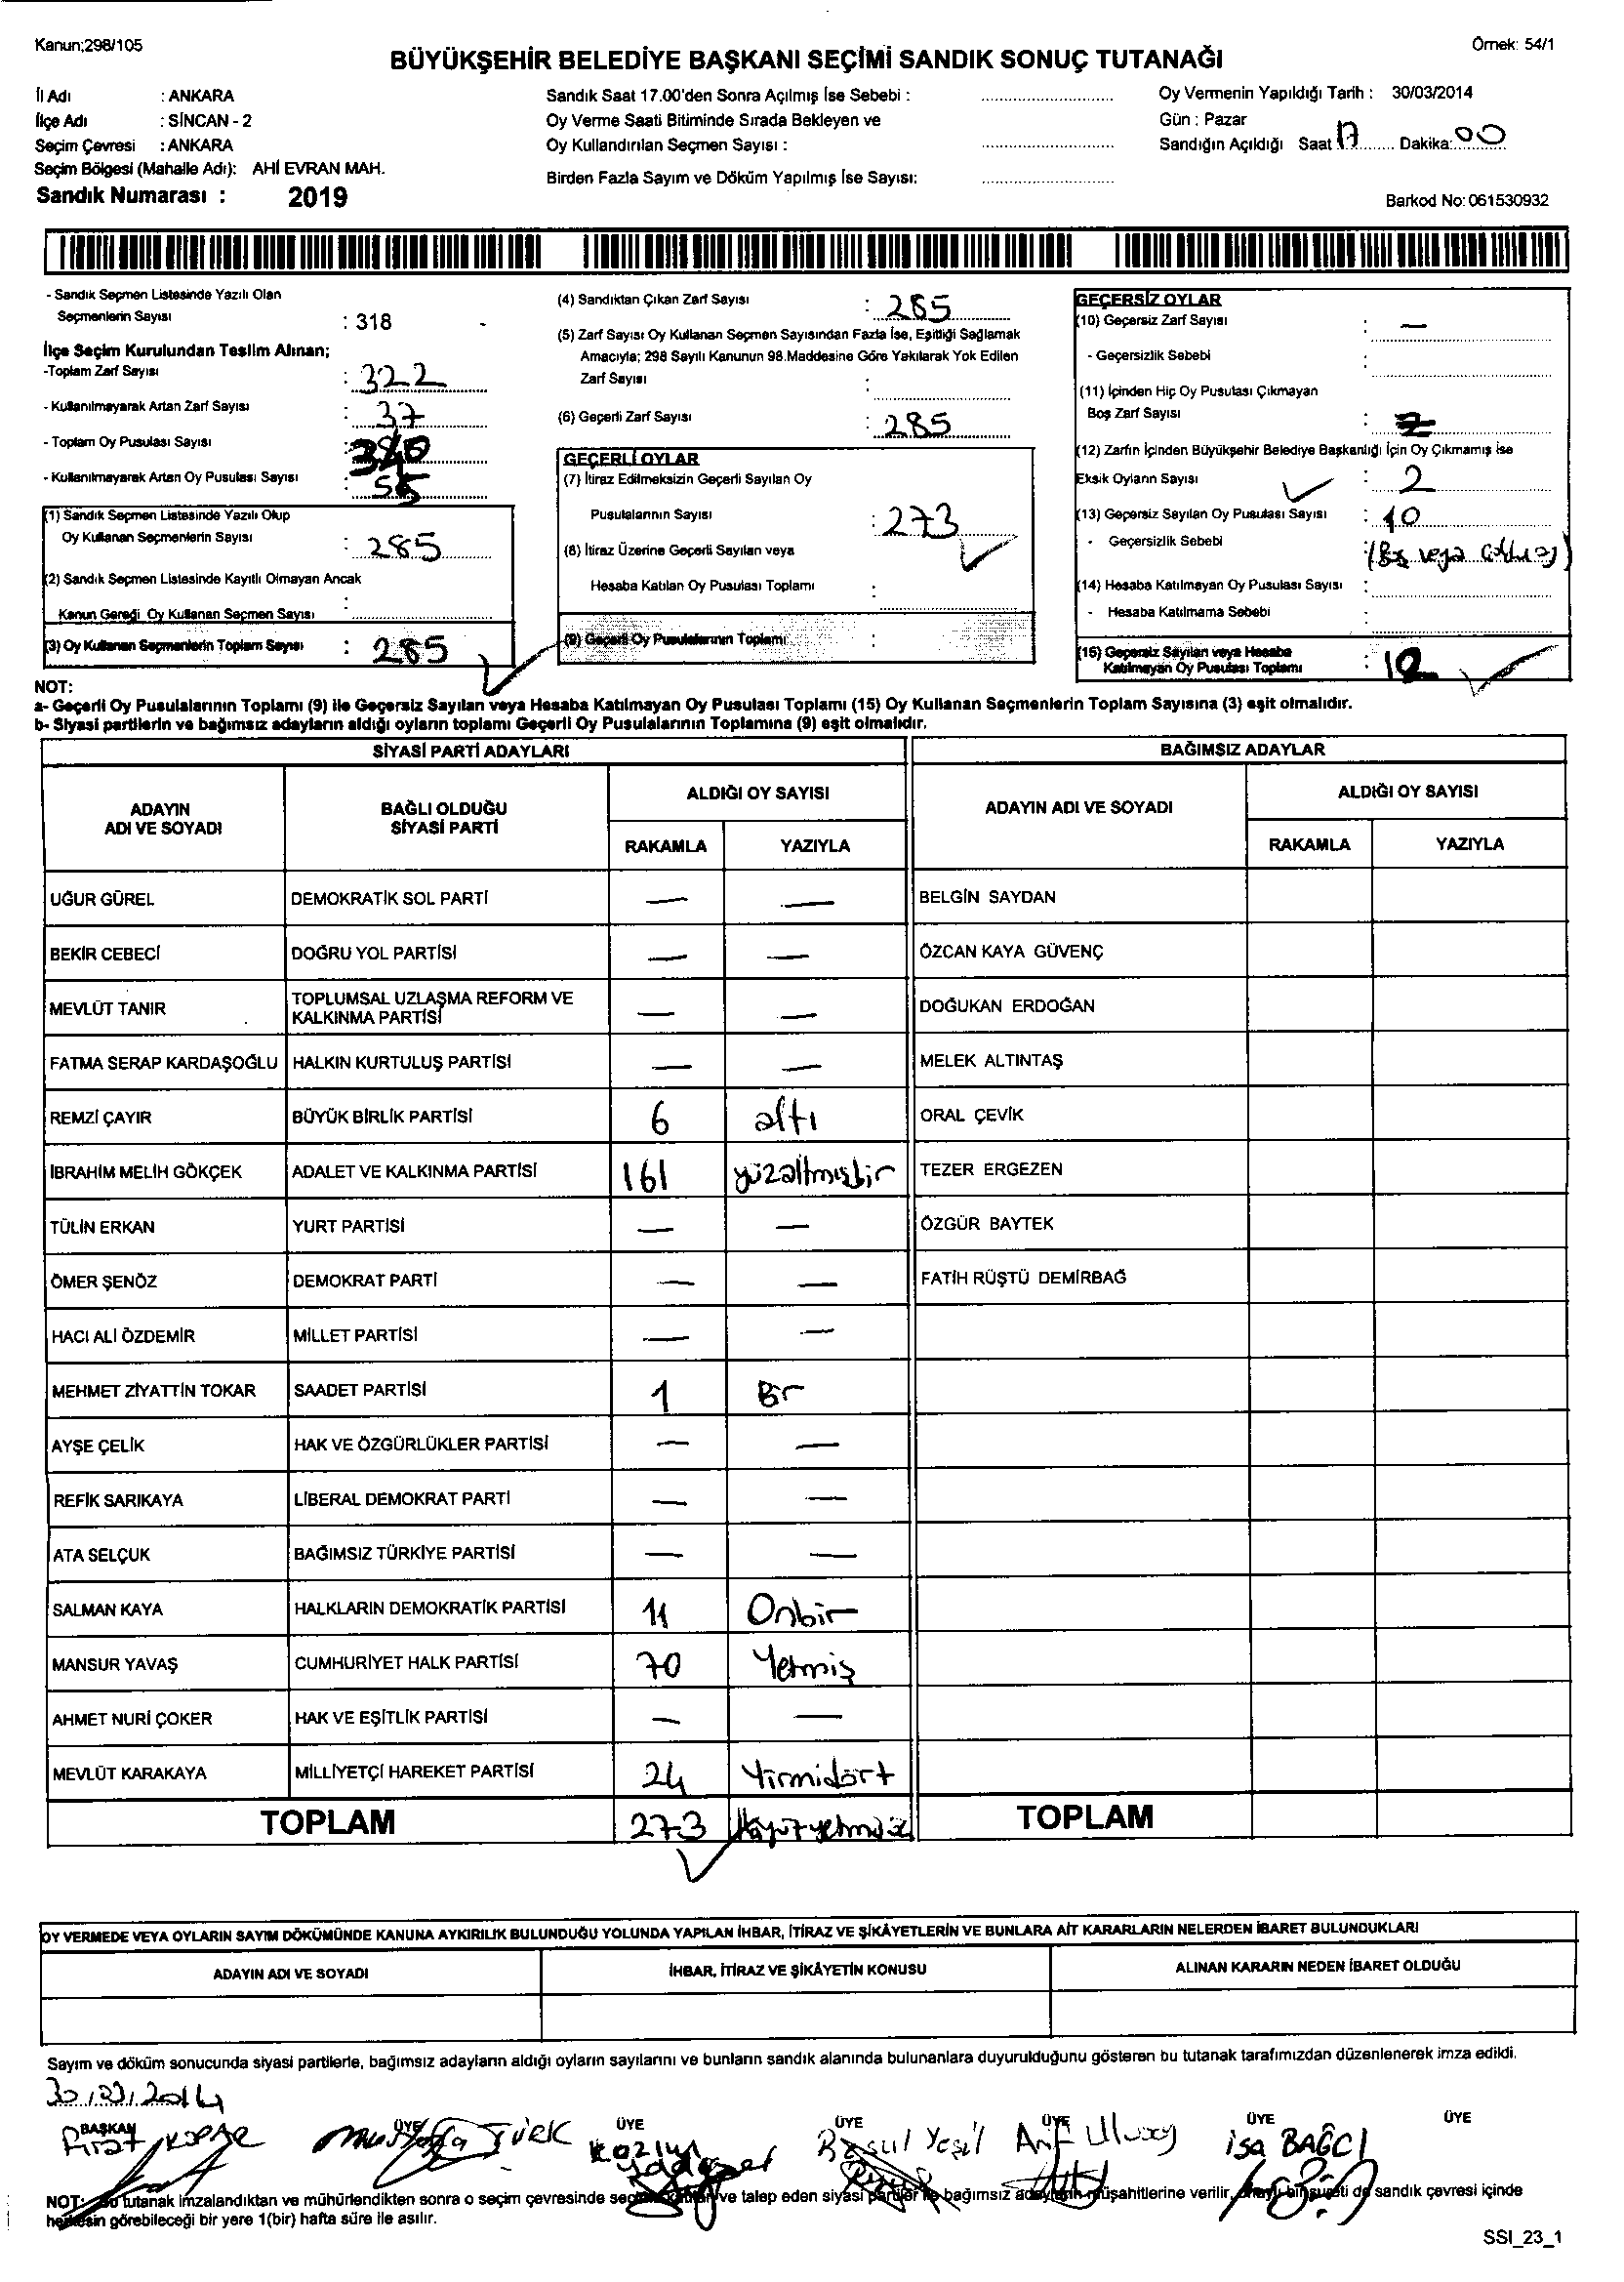 Kanun;298/105
Örnek: 54/1
BÜYÜKŞEHİR BELEDİYE BAŞKANI SEÇİMİ SANDIK SONUÇ TUTANAĞI
İl Adı : ANKARA
İlçe Adı : SİNCAN - 2
Seçim Çevresi : ANKARA
Seçim Bölgesi (Mahalle Adı): AHİ EVRAN MAH.
Sandık Numarası : 2019
Sandık Saat 17.00'den Sonra Açılmış İse Sebebi :
Oy Verme Saati Bitiminde Sırada Bekleyen ve
Oy Kullandırılan Seçmen Sayısı :
Birden Fazla Sayım ve Döküm Yapılmış İse Sayısı:
Oy Vermenin Yapıldığı Tarih : 30/03/2014
Gün : Pazar
Sandığın Açıldığı Saat 17 Dakika: 00
Barkod No: 061530932
- Sandık Seçmen Listesinde Yazılı Olan
Seçmenlerin Sayısı : 318
İlçe Seçim Kurulundan Teslim Alınan;
-Toplam Zarf Sayısı : 322
- Kullanılmayarak Artan Zarf Sayısı : 37
- Toplam Oy Pusulası Sayısı : 340
- Kullanılmayarak Artan Oy Pusulası Sayısı : 55
(1) Sandık Seçmen Listesinde Yazılı Olup
Oy Kullanan Seçmenlerin Sayısı : 285
(2) Sandık Seçmen Listesinde Kayıtlı Olmayan Ancak
Kanun Gereği Oy Kullanan Seçmen Sayısı :
(3) Oy Kullanan Seçmenlerin Toplam Sayısı : 285
(4) Sandıktan Çıkan Zarf Sayısı : 285
(5) Zarf Sayısı Oy Kullanan Seçmen Sayısından Fazla İse, Eşitliği Sağlamak
Amacıyla; 298 Sayılı Kanunun 98.Maddesine Göre Yakılarak Yok Edilen
Zarf Sayısı :
(6) Geçerli Zarf Sayısı : 285
GEÇERLİ OYLAR
(7) İtiraz Edilmeksizin Geçerli Sayılan Oy
Pusulalarının Sayısı : 273
(8) İtiraz Üzerine Geçerli Sayılan veya
Hesaba Katılan Oy Pusulası Toplamı :
(9) Geçerli Oy Pusulalarının Toplamı :
GEÇERSİZ OYLAR
(10) Geçersiz Zarf Sayısı : —
- Geçersizlik Sebebi :
(11) İçinden Hiç Oy Pusulası Çıkmayan
Boş Zarf Sayısı :
(12) Zarfın İçinden Büyükşehir Belediye Başkanlığı İçin Oy Çıkmamış İse
Eksik Oyların Sayısı : 2
(13) Geçersiz Sayılan Oy Pusulası Sayısı : 10
- Geçersizlik Sebebi : (Boş veya
(14) Hesaba Katılmayan Oy Pusulası Sayısı :
- Hesaba Katılmama Sebebi :
(15) Geçersiz Sayılan veya Hesaba
Katılmayan Oy Pusulası Toplamı : 12
NOT:
a- Geçerli Oy Pusulalarının Toplamı (9) ile Geçersiz Sayılan veya Hesaba Katılmayan Oy Pusulası Toplamı (15) Oy Kullanan Seçmenlerin Toplam Sayısına (3) eşit olmalıdır.
b- Siyasi partilerin ve bağımsız adayların aldığı oyların toplamı Geçerli Oy Pusulalarının Toplamına (9) eşit olmalıdır.
SİYASİ PARTİ ADAYLARI
ADAYIN ADI VE SOYADI BAĞLI OLDUĞU SİYASİ PARTİ ALDIĞI OY SAYISI
RAKAMLA YAZIYLA
UĞUR GÜREL DEMOKRATİK SOL PARTİ — —
BEKİR CEBECİ DOĞRU YOL PARTİSİ — —
MEVLÜT TANIR TOPLUMSAL UZLAŞMA REFORM VE KALKINMA PARTİSİ — —
FATMA SERAP KARDAŞOĞLU HALKIN KURTULUŞ PARTİSİ — —
REMZİ ÇAYIR BÜYÜK BİRLİK PARTİSİ 6 altı
İBRAHİM MELİH GÖKÇEK ADALET VE KALKINMA PARTİSİ 161 yüzaltmışbir
TÜLİN ERKAN YURT PARTİSİ — —
ÖMER ŞENÖZ DEMOKRAT PARTİ — —
HACI ALİ ÖZDEMİR MİLLET PARTİSİ — —
MEHMET ZİYATTİN TOKAR SAADET PARTİSİ 1 Bir
AYŞE ÇELİK HAK VE ÖZGÜRLÜKLER PARTİSİ — —
REFİK SARIKAYA LİBERAL DEMOKRAT PARTİ — —
ATA SELÇUK BAĞIMSIZ TÜRKİYE PARTİSİ — —
SALMAN KAYA HALKLARIN DEMOKRATİK PARTİSİ 11 Onbir
MANSUR YAVAŞ CUMHURİYET HALK PARTİSİ 70 Yetmiş
AHMET NURİ ÇOKER HAK VE EŞİTLİK PARTİSİ — —
MEVLÜT KARAKAYA MİLLİYETÇİ HAREKET PARTİSİ 24 Yirmidört
TOPLAM 273
BAĞIMSIZ ADAYLAR
ADAYIN ADI VE SOYADI ALDIĞI OY SAYISI
RAKAMLA YAZIYLA
BELGİN SAYDAN
ÖZCAN KAYA GÜVENÇ
DOĞUKAN ERDOĞAN
MELEK ALTINTAŞ
ORAL ÇEVİK
TEZER ERGEZEN
ÖZGÜR BAYTEK
FATİH RÜŞTÜ DEMİRBAĞ
TOPLAM
OY VERMEDE VEYA OYLARIN SAYIM DÖKÜMÜNDE KANUNA AYKIRILIK BULUNDUĞU YOLUNDA YAPILAN İHBAR, İTİRAZ VE ŞİKÂYETLERİN VE BUNLARA AİT KARARLARIN NELERDEN İBARET BULUNDUKLARI
ADAYIN ADI VE SOYADI İHBAR, İTİRAZ VE ŞİKÂYETİN KONUSU ALINAN KARARIN NEDEN İBARET OLDUĞU
Sayım ve döküm sonucunda siyasi partilerle, bağımsız adayların aldığı oyların sayılarını ve bunların sandık alanında bulunanlara duyurulduğunu gösteren bu tutanak tarafımızdan düzenlenerek imza edildi.
30/03/2014
BAŞKAN ÜYE ÜYE ÜYE ÜYE ÜYE ÜYE
Fırat Mustafa TÜRK Resul Yeşil Arif Ulusoy isa BAĞCI
NOT: Bu tutanak imzalandıktan ve mühürlendikten sonra o seçim çevresinde ve talep eden siyasi partiler ile bağımsız adayların müşahitlerine verilir, onaylı bir sureti de sandık çevresi içinde
herkesin görebileceği bir yere 1(bir) hafta süre ile asılır.
SSI_23_1